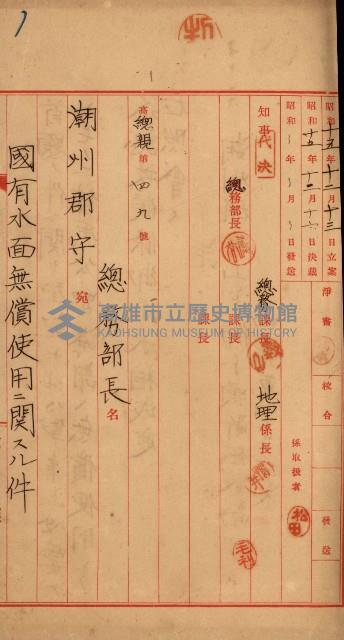 昭和十五年十二月十三日立案
昭和十五年十二月十六日決裁
昭和 年 月 日發送
淨書
校合
發送
知事
代決
總務部長
總務課長
地理係長
係取扱者
松田
毛利
課長
課長
高總親第四九號
總務部長名
潮州郡守宛
國有水面無償使用ニ関スル件
高雄市立歷史博物館
KAOHSIUNG MUSEUM OF HISTORY